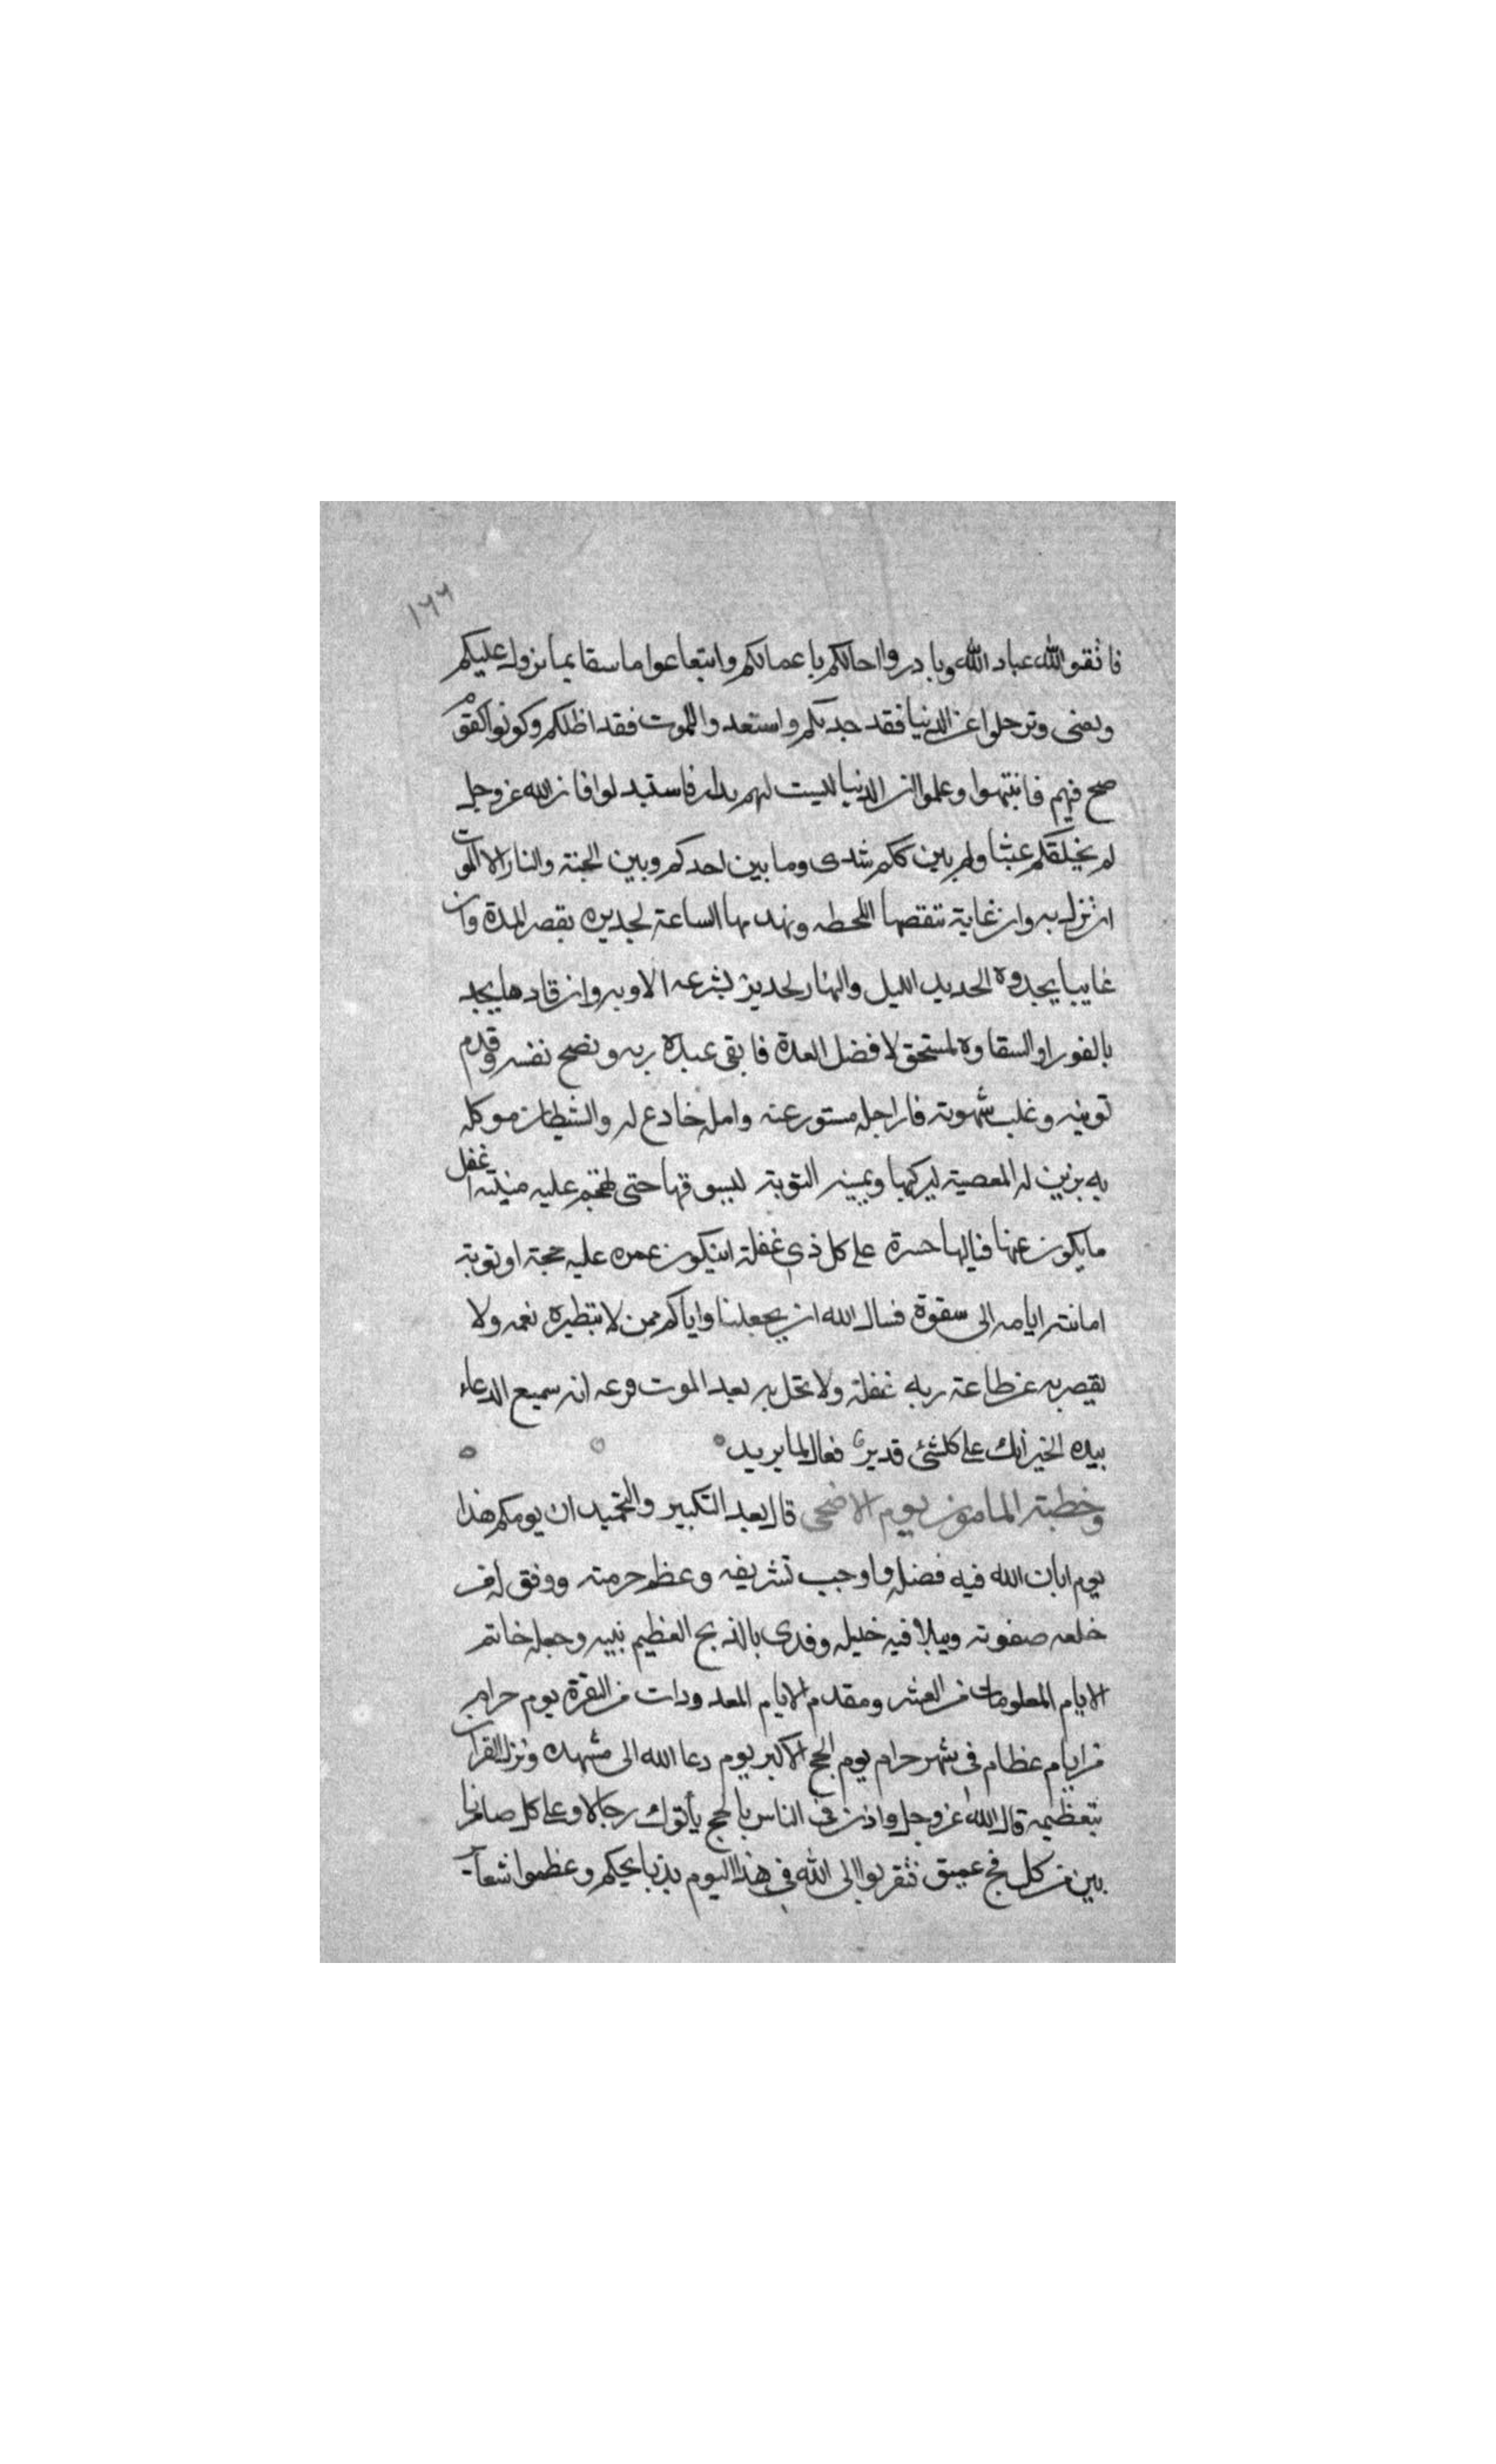 ١٦٦
فاتقوا الله عباد الله وبادروا اجالكم باعمالكم وابتاعوا ما سقا بما يزول عليكم
ويفنى وترحلوا عن الدنيا فقد جد بكم واستعدوا للموت فقد اظلكم وكونوا كقوم
صح فيهم فانتبهوا وعلموا ان الدنيا ليست لهم بدار فاستبدلوا فان الله عز وجل
لم يخلقكم عبثا ولم يترككم سدى وما بين احدكم وبين الجنة والنار الا الموت
ان نزل به وان غاية تنقصها اللحظه وتهدمها الساعة لجديره بقصر المدة وان
غايبا يجدوه الجديد الليل والنهار لجدير بسرعه الاوبه وان قادما يجد
بالفور او السقاوه لمستحق لافضل العدة فابقى عبده ربه ونصح نفسه وقدم
توبته وغلب شهوته فان اجله مستور عنه وامله خادع له والشيطان موكله
به يزين له المعصية ليركبها ويمنيه التوبة ليسوقها حتى تهجم عليه منيته اغفل
ما يكون عنها فيالها حسرة على كل ذي غفلة ان يكون عمره عليه حجة او توبة
اما تته ايامه الى سقوة فسال الله ان يجعلنا واياكم ممن لا تبطره نعمه ولا
يقصر به عن طاعة ربه غفلة ولا تحل به بعد الموت فرعه انه سميع الدعاء
بيده الخير انك على كلشئ قدير فعال لما يريد
وخطبة المامون يوم الاضحى قال بعد التكبير والتحميد ان يومكم هذا
يوم ابان الله فيه فضله واوجب تشريفه وعظم حرمته ووفق له من
خلقه صفوته وبلا فيه خليله وفدى بالذبح العظيم نبيه وجعله خاتم
الايام المعلومات من العشر ومقدم الايام المعدودات من النفرة يوم حرام
من ايام عظام في شهر حرام يوم الحج الاكبر يوم دعا الله الى مشهده ونزل القران
بتعظيمه قال الله عز وجل واذن في الناس بالحج يأتوك رجالا وعلى كل ضامر يا
بين من كل فج عميق فتقربوا الى الله في هذا اليوم بذبايحكم وعظموا شعآ